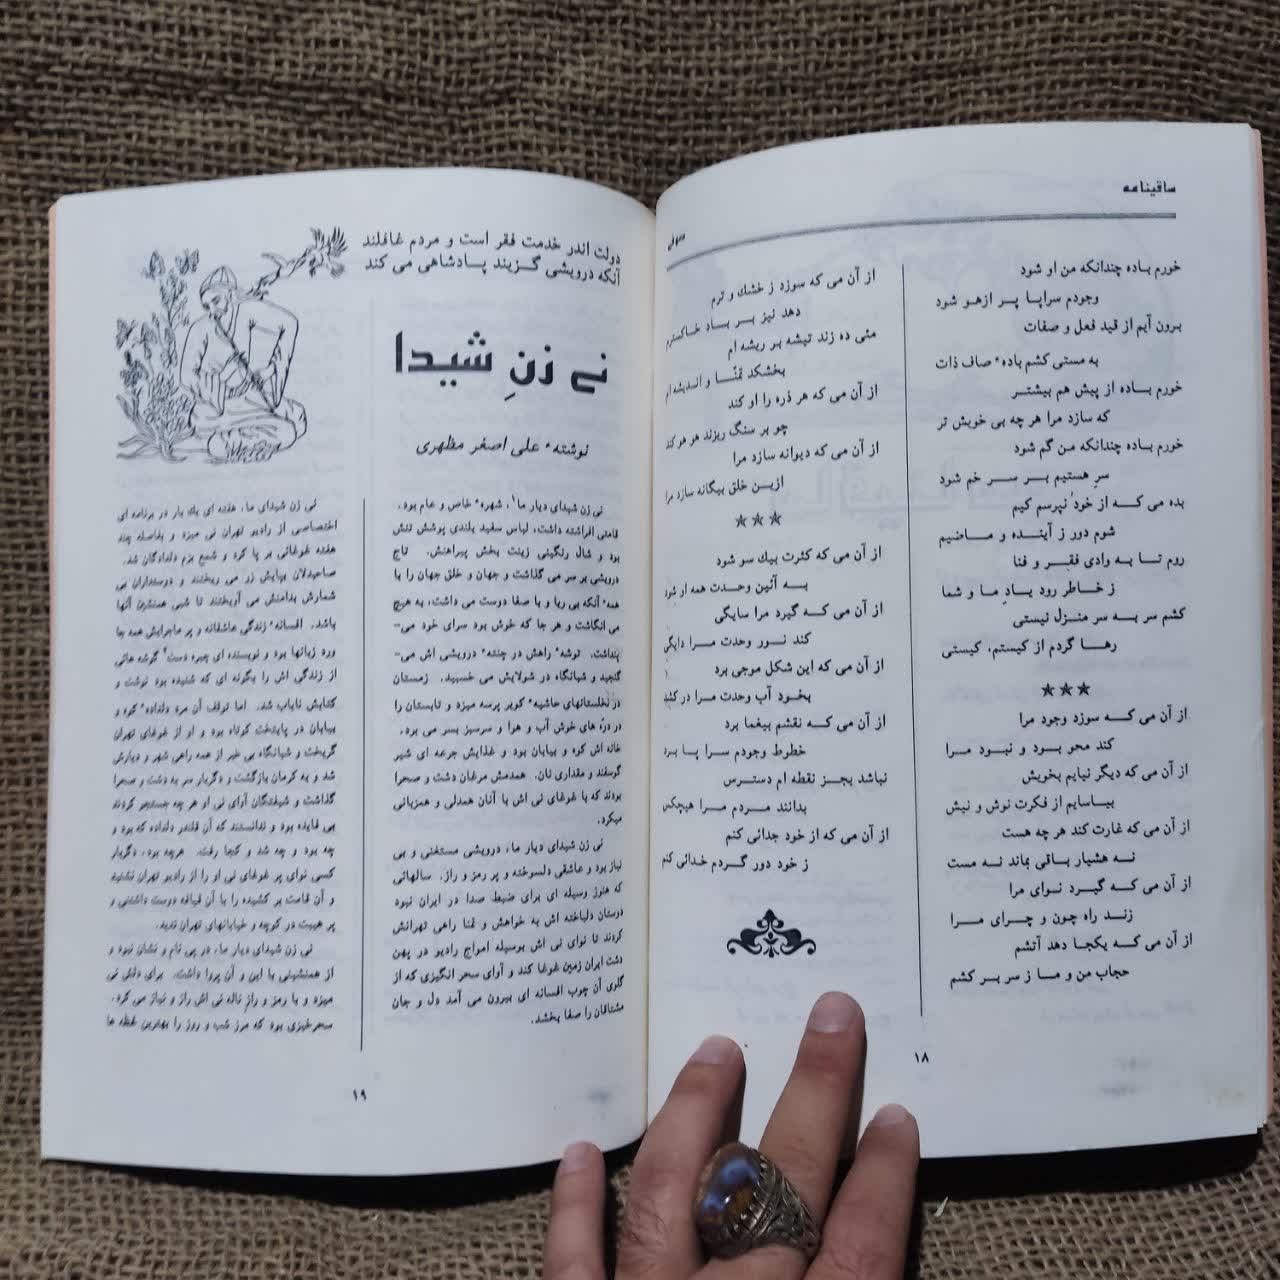 ساقینامه
خورم باده چندانکه من او شود
وجودم سراپا پر ازهو شود
برون آیم از قید فعل و صفات
به مستی کشم بادهٔ صاف ذات
خورم باده از پیش هم بیشتر
که سازد مرا هر چه بی خویش تر
خورم باده چندانکه من گم شود
سرِ هستیم بر سر خم شود
بده می که از خود نپرسم کیم
شوم دور ز آینده و ماضیم
روم تا به وادی فقر و فنا
ز خاطر رود یادِ ما و شما
کشم سر به سر منزل نیستی
رها گردم از کیستم، کیستی
***
از آن می که سوزد وجود مرا
کند محو بود و نبود مرا
از آن می که دیگر نیایم بخویش
بیاسایم از فکرت نوش و نیش
از آن می که غارت کند هر چه هست
نه هشیار باقی بماند نه مست
از آن می که گیرد نوای مرا
زند راه چون و چرای مرا
از آن می که یکجا دهد آتشم
حجاب من و ما ز سر بر کشم
از آن می که سوزد ز خشك و ترم
دهد نیز بر باد خاکسترم
مئی ده زند تیشه بر ریشه ام
بخشکد تمنّا و اندیشه ام
از آن می که هر ذره را او کند
چو بر سنگ ریزند هو هو کند
از آن می که دیوانه سازد مرا
ازین خلق بیگانه سازد مرا
***
از آن می که کثرت بیك سو شود
به آئین وحدت همه او شود
از آن می که گیرد مرا سایگی
کند نور وحدت مرا دایگی
از آن می که این شکل موجی برد
بخود آب وحدت مرا در کشد
از آن می که نقشم بیغما برد
خطوط وجودم سرا پا برد
نباشد بجز نقطه ام دسترس
بدانند مردم مرا هیچکس
از آن می که از خود جدائی کنم
ز خود دور گردم خدائی کنم
۱۸
دولت اندر خدمت فقر است و مردم غافلند
آنکه درویشی گزیند پادشاهی می کند
نی زنِ شیدا
نوشتهٔ علی اصغر مظهری
نی زن شیدای دیار ما۱، شهرهٔ خاص و عام بود.
قامتی افراشته داشت، لباس سفید بلندی پوشش تنش
بود و شال رنگینی زینت بخش پیراهنش. تاج
درویشی بر سر می گذاشت و جهان و خلق جهان را با
همهٔ آنکه بی ریا و با صفا دوست می داشت، به هیچ
می انگاشت و هر جا که خوش بود سرای خود می-
پنداشت. توشهٔ راهش در چنتهٔ درویشی اش می-
گنجید و شبانگاه در شولایش می خسبید. زمستان
در نخلستانهای حاشیهٔ کویر پرسه میزد و تابستان را
در درّه های خوش آب و هوا و سرسبز بسر می برد.
خانه اش کوه و بیابان بود و غذایش جرعه ای شیر
گوسفند و مقداری نان. همدمش مرغان دشت و صحرا
بودند که با غوغای نی اش با آنان همدلی و همزبانی
میکرد.
نی زن شیدای دیار ما، درویشی مستغنی و بی
نیاز بود و عاشقی دلسوخته و پر رمز و راز. سالهائی
که هنوز وسیله ای برای ضبط صدا در ایران نبود
دوستان دلباخته اش به خواهش و تمنا راهی تهرانش
کردند تا نوای نی اش بوسیله امواج رادیو در پهن
دشت ایران زمین غوغا کند و آوای سحر انگیزی که از
گلوی آن چوب افسانه ای بیرون می آمد دل و جان
مشتاقان را صفا بخشد.
نی زن شیدای ما، هفته ای یك بار در برنامه ای
اختصاصی از رادیو تهران نی میزد و بفاصله چند
هفته غوغائی بر پا کرد و شمع بزم دلدادگان شد.
صاحبدلان بپایش زر می ریختند و دوستداران بی
شمارش بدامنش می آویختند تا شبی همنشین آنها
باشد. افسانهٔ زندگی عاشقانه و پر ماجرایش همه جا
ورد زبانها بود و نویسنده ای چیره دست۲ گوشه هائی
از زندگی اش را بگونه ای که شنیده بود نوشت و
کتابش نایاب شد. اما توقف آن مرد دلدادهٔ کوه و
بیابان در پایتخت کوتاه بود و او از غوغای تهران
گریخت و شبانگاه بی خبر از همه راهی شهر و دیارش
شد و به کرمان بازگشت و دگربار سر به دشت و صحرا
گذاشت و شیفتگان آوای نی او هر چه جستجو کردند
بی فایده بود و ندانستند که آن قلندر دلداده که بود و
چه بود و چه شد و کجا رفت. هرچه بود، دگربار
کسی نوای پر غوغای نی او را از رادیو تهران نشنید
و آن قامت بر کشیده را با آن قیافه دوست داشتنی و
پر هیبت در کوچه و خیابانهای تهران ندید.
نی زن شیدای دیار ما، در پی نام و نشان نبود و
از همنشینی با این و آن پروا داشت. برای دلش نی
میزد و با رمز و راز ناله نی اش راز و نیاز می کرد.
سحرخیزی بود که مرز شب و روز را بهترین لحظه ها
۱۹